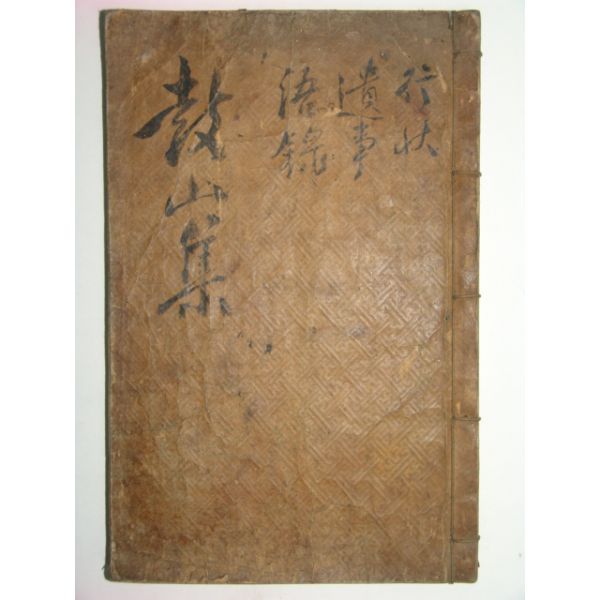 行状
遺事
語錄
鼓山集